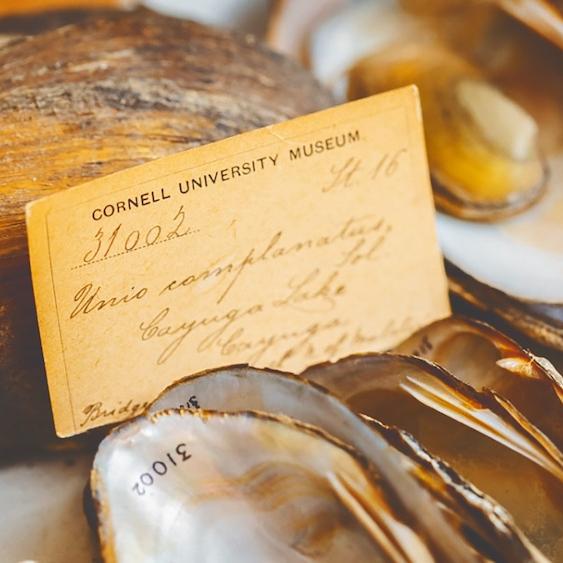 CORNELL UNIVERSITY MUSEUM
St. 16
31002
Unio complanatus,
Sol
Cayuga Lake
Cayuga
Bridge
31002